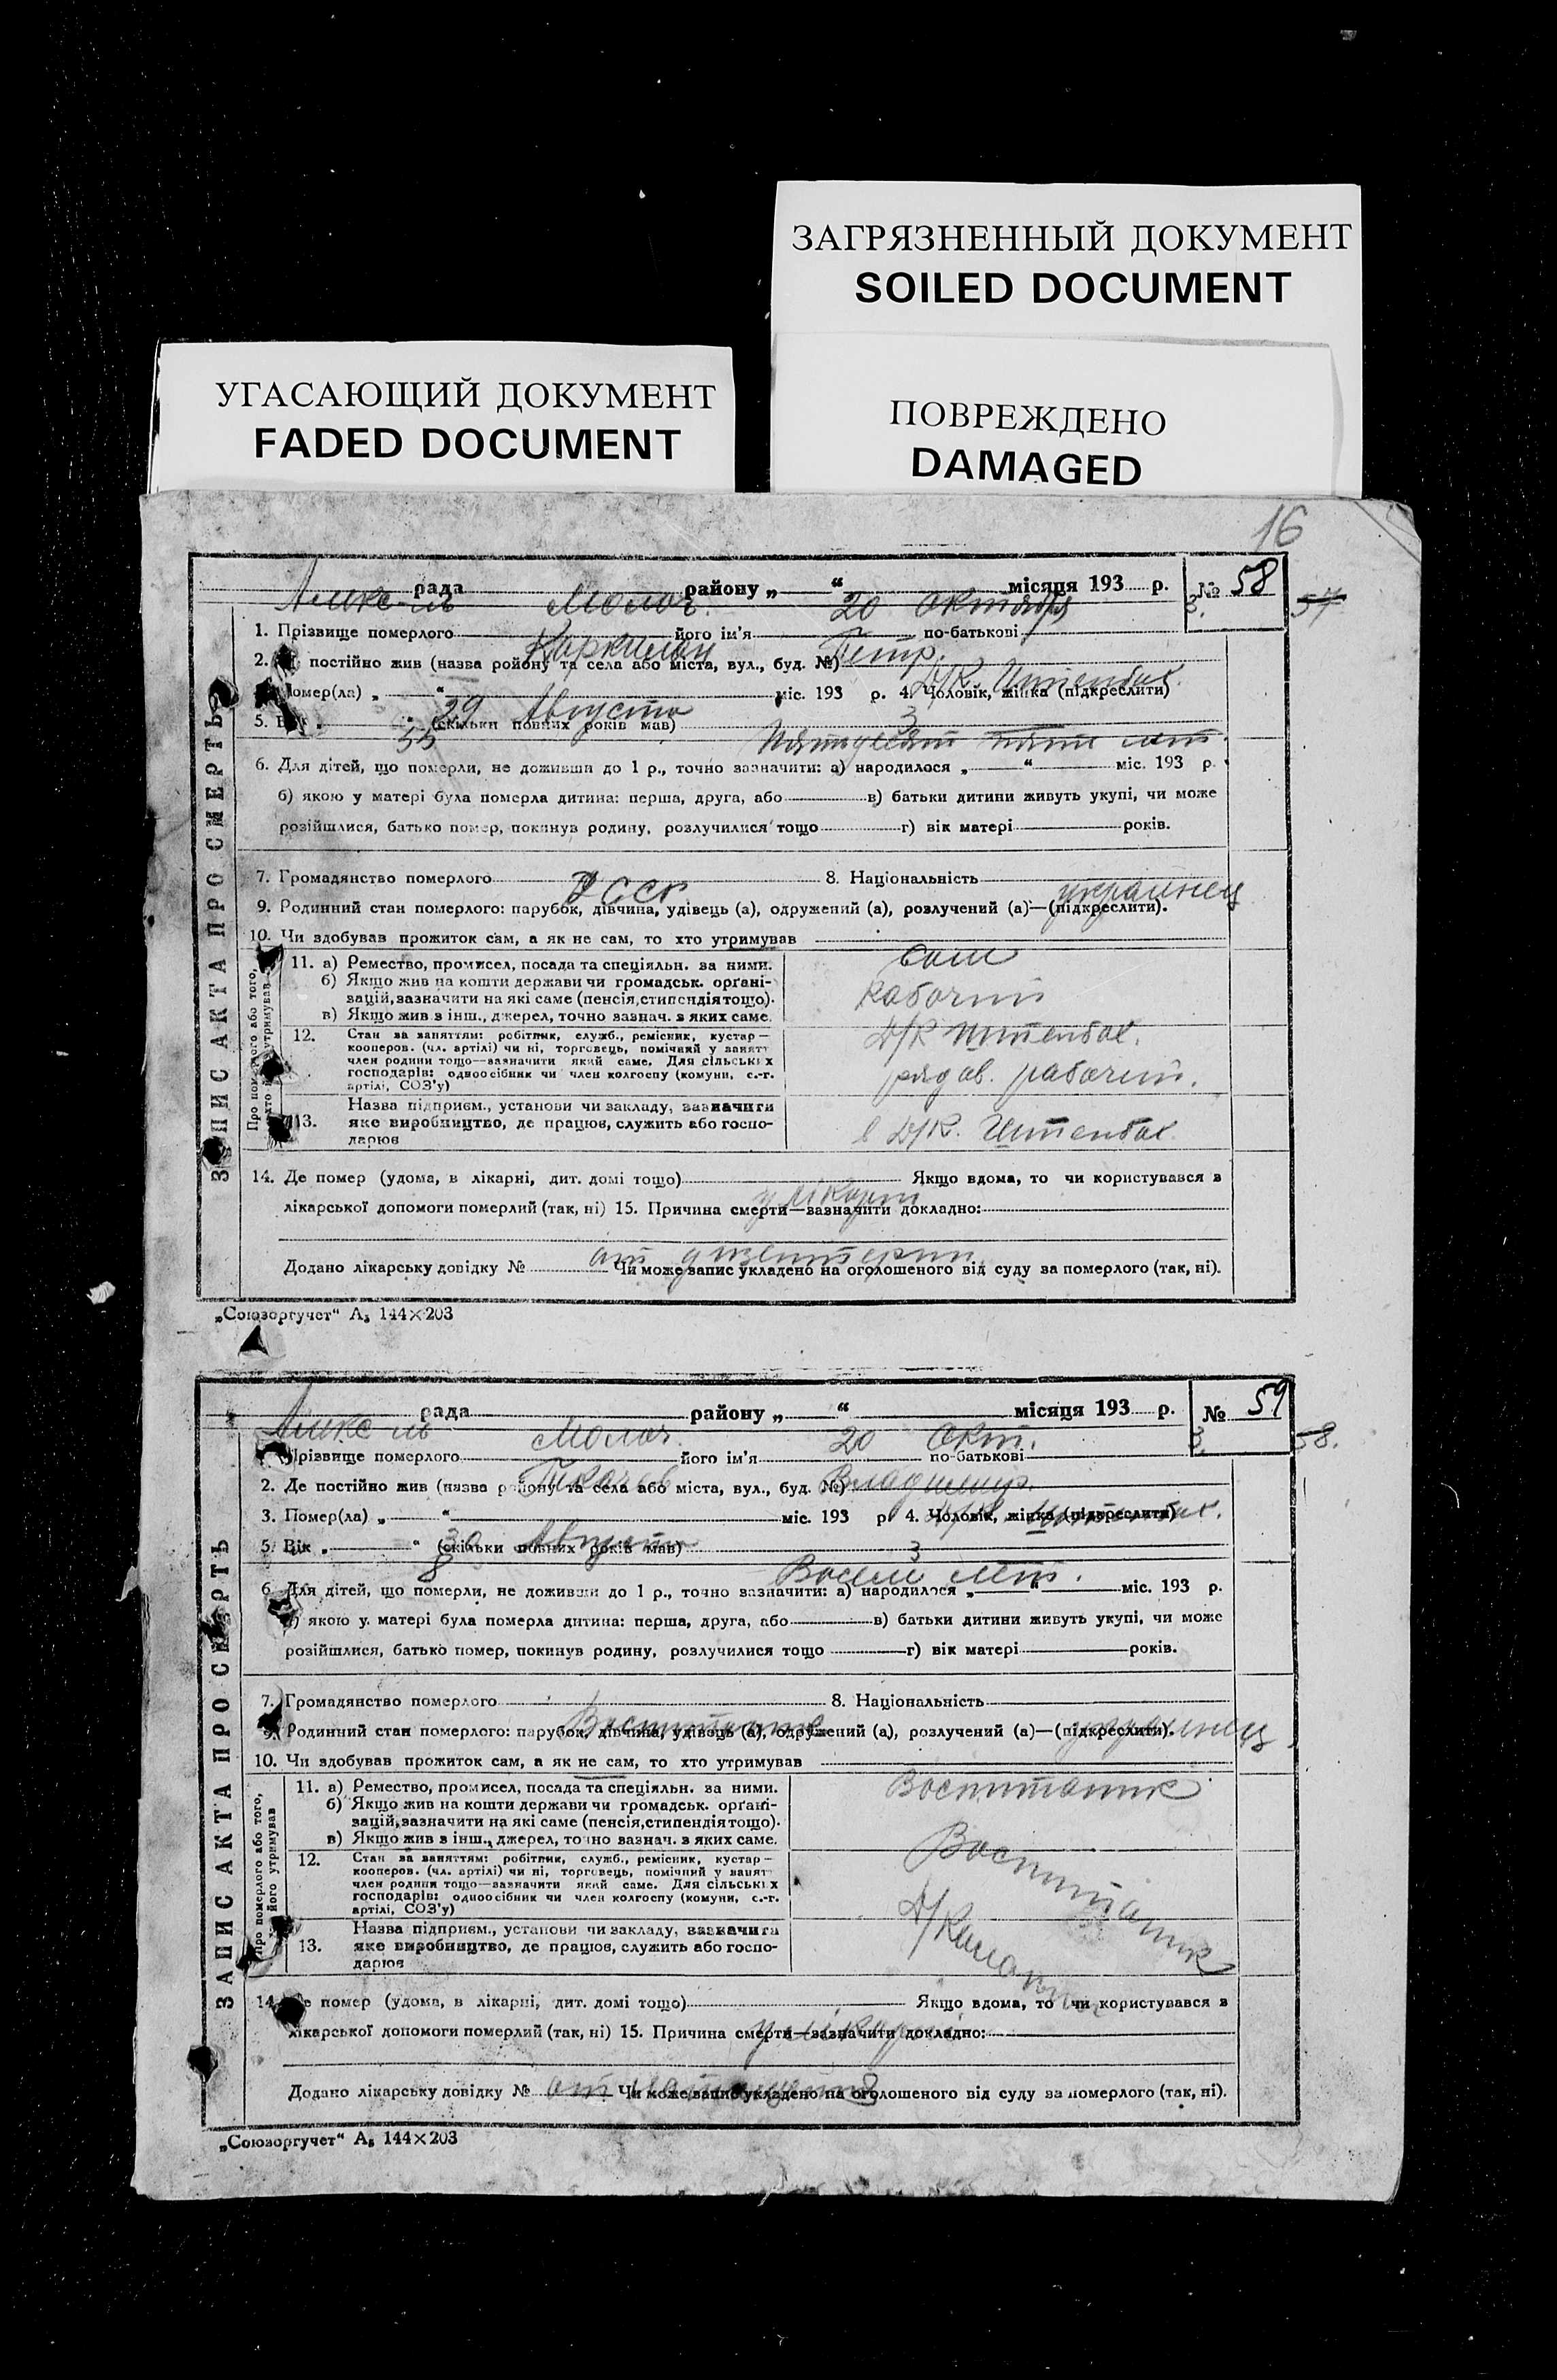 ЗАГРЯЗНЕННЫЙ ДОКУМЕНТ
SOILED DOCUMENT
УГАСАЮЩИЙ ДОКУМЕНТ
FADED DOCUMENT
ПОВРЕЖДЕНО
DAMAGED
16
рада района „ “ місяця 193 р. № 58
Молоч. 20 Октября 3. 57
1. Прізвище померлого його ім'я по-батькові
2. постійно жив (назва ройону та села або міста, вул., буд. №) Петр.
Д/К.
Помер(ла) „ “ міс. 193 р. 4. Чоловік, жінка (підкреслити)
29 Августа 3
5. (скільки повних років мав)
55 Пятьдесят пять лет.
6. Для дітей, що померли, не доживши до 1 р., точно зазначити: а) народилося „ “ міс. 193 р.
б) якою у матері була померла дитина: перша, друга, або в) батьки дитини живуть укупі, чи може
розійшлися, батько помер, покинув родину, розлучилися тощо г) вік матері років.
7. Громадянство померлого 8. Національність
УССР украинец
9. Родинний стан померлого: парубок, дівчина, удівець (а), одружений (а), розлучений (а)—(підкреслити).
10. Чи здобував прожиток сам, а як не сам, то хто утримував
сам
11. а) Ремество, промисел, посада та спеціяльн. за ними.
б) Якщо жив на кошти держави чи громадськ. орґані-
зацій, зазначити на які саме (пенсія, стипендія тощо).
в) Якщо жив в інш., джерел, точно зазнач. з яких саме.
Рабочий
12. Стан за заняттям: робітник, служб., ремісник, кустар—
кооперов. (чл. артілі) чи ні, торговець, помічний у занятт
член родини тощо—зазначити який саме. Для сільських
господарів: одноосібник чи член колгоспу (комуни, с.-г.
артілі, СОЗ'у)
Д/К
рядов. рабочий.
13. Назва підприєм., установи чи закладу, зазначити
яке виробництво, де працює, служить або госпо-
дарює
в Д/К.
14. Де помер (удома, в лікарні, дит. домі тощо) Якщо вдома, то чи користувався в
у лікарні
лікарської допомоги померлий (так, ні) 15. Причина смерти—зазначити докладно:
от дизентерии
Додано лікарську довідку № Чи може запис укладено на оголошеного від суду за померлого (так, ні).
ЗАПИС АКТА ПРО СМЕРТЬ
„Союзоргучет“ А₅ 144×203
рада району „ “ місяця 193 р. № 59
Молоч. 20 Окт. 3. 58.
Прізвище померлого його ім'я по-батькові
2. Де постійно жив (назва району та села або міста, вул., буд. №) Владимир.
3. Помер(ла) „ “ міс. 193 р. 4. Чоловік, жінка (підкреслити)
30 Августа 3
5. Вік „ “ (скільки повних років мав)
8 Восем лет.
6. Для дітей, що померли, не доживши до 1 р., точно зазначити: а) народилося „ “ міс. 193 р.
б) якою у матері була померла дитина: перша, друга, або в) батьки дитини живуть укупі, чи може
розійшлися, батько помер, покинув родину, розлучилися тощо г) вік матері років.
7. Громадянство померлого 8. Національність
украинец
9. Родинний стан померлого: парубок, дівчина, удівець (а), одружений (а), розлучений (а)—(підкреслити).
10. Чи здобував прожиток сам, а як не сам, то хто утримував
Воспитаник
11. а) Ремество, промисел, посада та спеціяльн. за ними.
б) Якщо жив на кошти держави чи громадськ. орґані-
зацій, зазначити на які саме (пенсія, стипендія тощо).
в) Якщо жив в інш., джерел, точно зазнач. з яких саме.
Воспитаник
12. Стан за заняттям: робітник, служб., ремісник, кустар—
кооперов. (чл. артілі) чи ні, торговець, помічний у занятт
член родини тощо—зазначити який саме. Для сільських
господарів: одноосібник чи член колгоспу (комуни, с.-г.
артілі, СОЗ'у)
13. Назва підприєм., установи чи закладу, зазначити
яке виробництво, де працює, служить або госпо-
дарює
14. Де помер (удома, в лікарні, дит. домі тощо) Якщо вдома, то чи користувався в
у лікарні
лікарської допомоги померлий (так, ні) 15. Причина смерти—зазначити докладно:
Додано лікарську довідку № от Чи може запис укладено на оголошеного від суду за померлого (так, ні).
Про померлого або того, хто його утримував
ЗАПИС АКТА ПРО СМЕРТЬ
„Союзоргучет“ А₅ 144×203